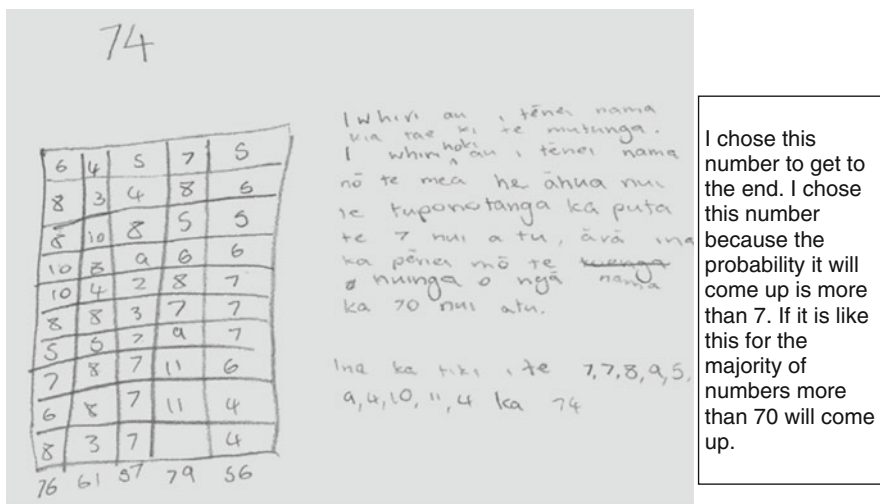 74
6 4 5 7 5
8 3 4 8 5
8 10 8 5 5
10 8 9 6 6
10 4 2 8 7
8 8 3 7 7
5 5 7 9 7
7 8 7 11 6
6 8 7 11 4
8 3 7 4
76 61 57 79 56
I whiri au i tēnei nama
kia tae ki te mutunga.
I whiri hoki au i tēnei nama
nō te mea he āhua nui
te tuponotanga ka puta
te 7 nui a tu, ārā ina
ka pēnei mō te
nuinga o ngā nama
ka 70 nui atu.
Ina ka tiki i te 7,7,8,9,5,
9,4,10,11,4 ka 74
I chose this
number to get to
the end. I chose
this number
because the
probability it will
come up is more
than 7. If it is like
this for the
majority of
numbers more
than 70 will come
up.